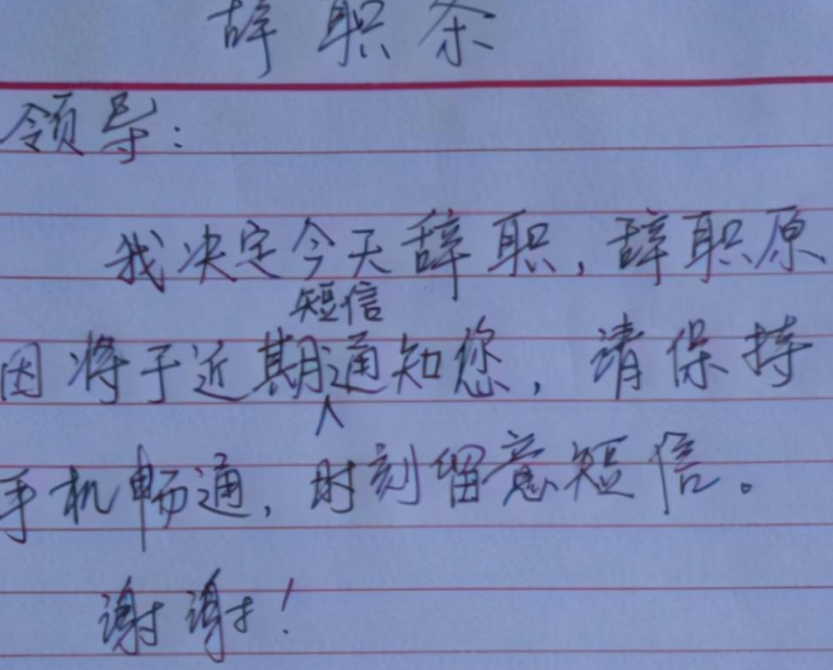 辞职条
领导：
我决定今天辞职，辞职原
短信
因将于近期通知您，请保持
手机畅通，时刻留意短信。
谢谢！